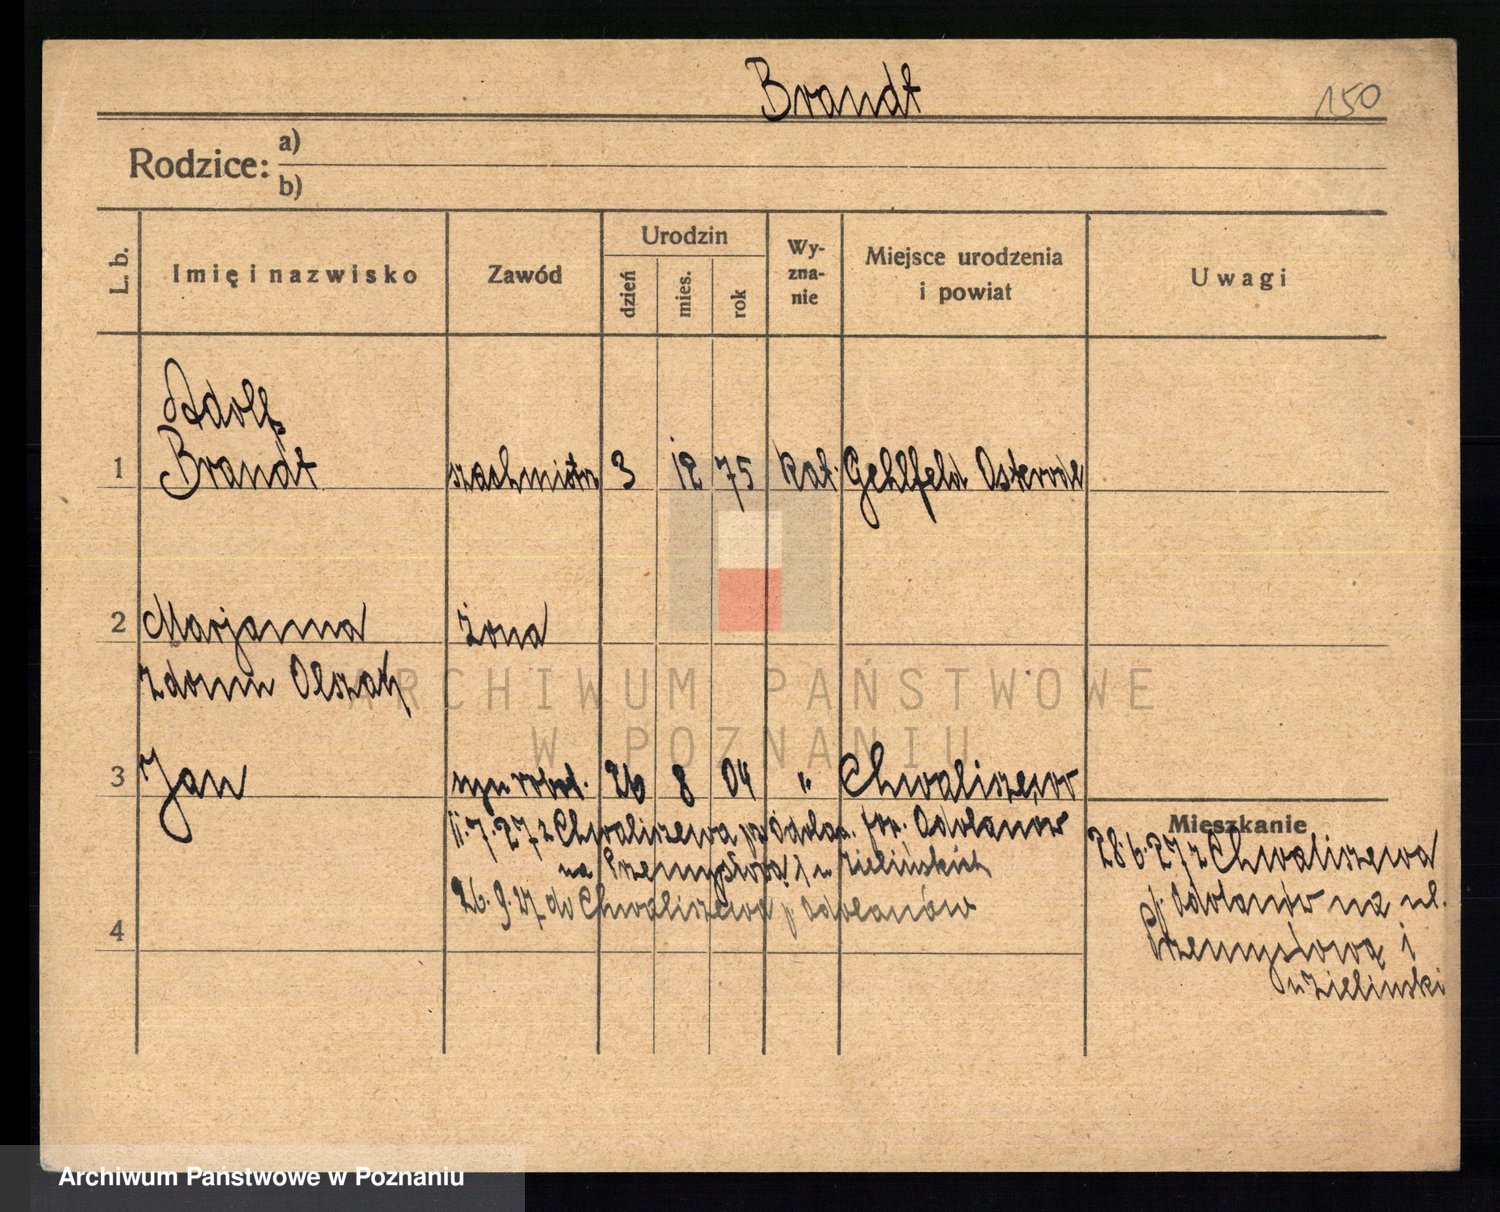 Brandt
150
Rodzice:
a)
b)
L. b.
Imię i nazwisko
Zawód
Urodzin
dzień
mies.
rok
Wy-
zna-
nie
Miejsce urodzenia
i powiat
Uwagi
Adolf
1 Brandt szachmistrz 3 12 75 kat. Gehlfeld Osterode
2 Marjanna żona
z domu Olszak
3 Jan syn robot. 26 8 04 " Chwaliszew
11.7.27 z Chwaliszewa pow. Adolanow
na Przemysłową 1 u Zielińskich
26.9.27 do Chwaliszewa p. Adolanów
4
Mieszkanie
28.6.27 z Chwaliszewa
p. Adolanów na ul.
Przemysłową 1
u Zielinski
ARCHIWUM PAŃSTWOWE
W POZNANIU
Archiwum Państwowe w Poznaniu